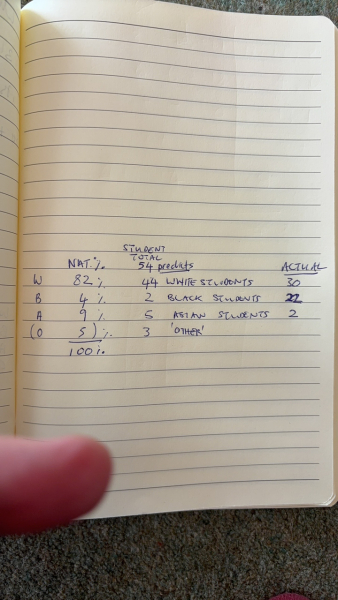 STUDENT
TOTAL
NAT.% 54 predicts ACTUAL
W 82% 44 WHITE STUDENTS 30
B 4% 2 BLACK STUDENTS 22
A 9% 5 ASIAN STUDENTS 2
(O 5)% 3 'OTHER'
100%